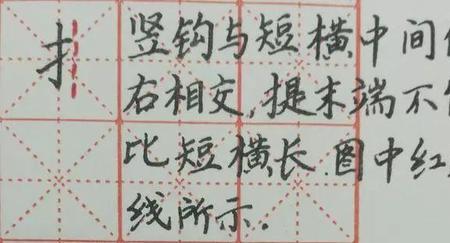 扌 竖钩与短横中间
右相交,提末端不
比短横长.图中红
线所示.